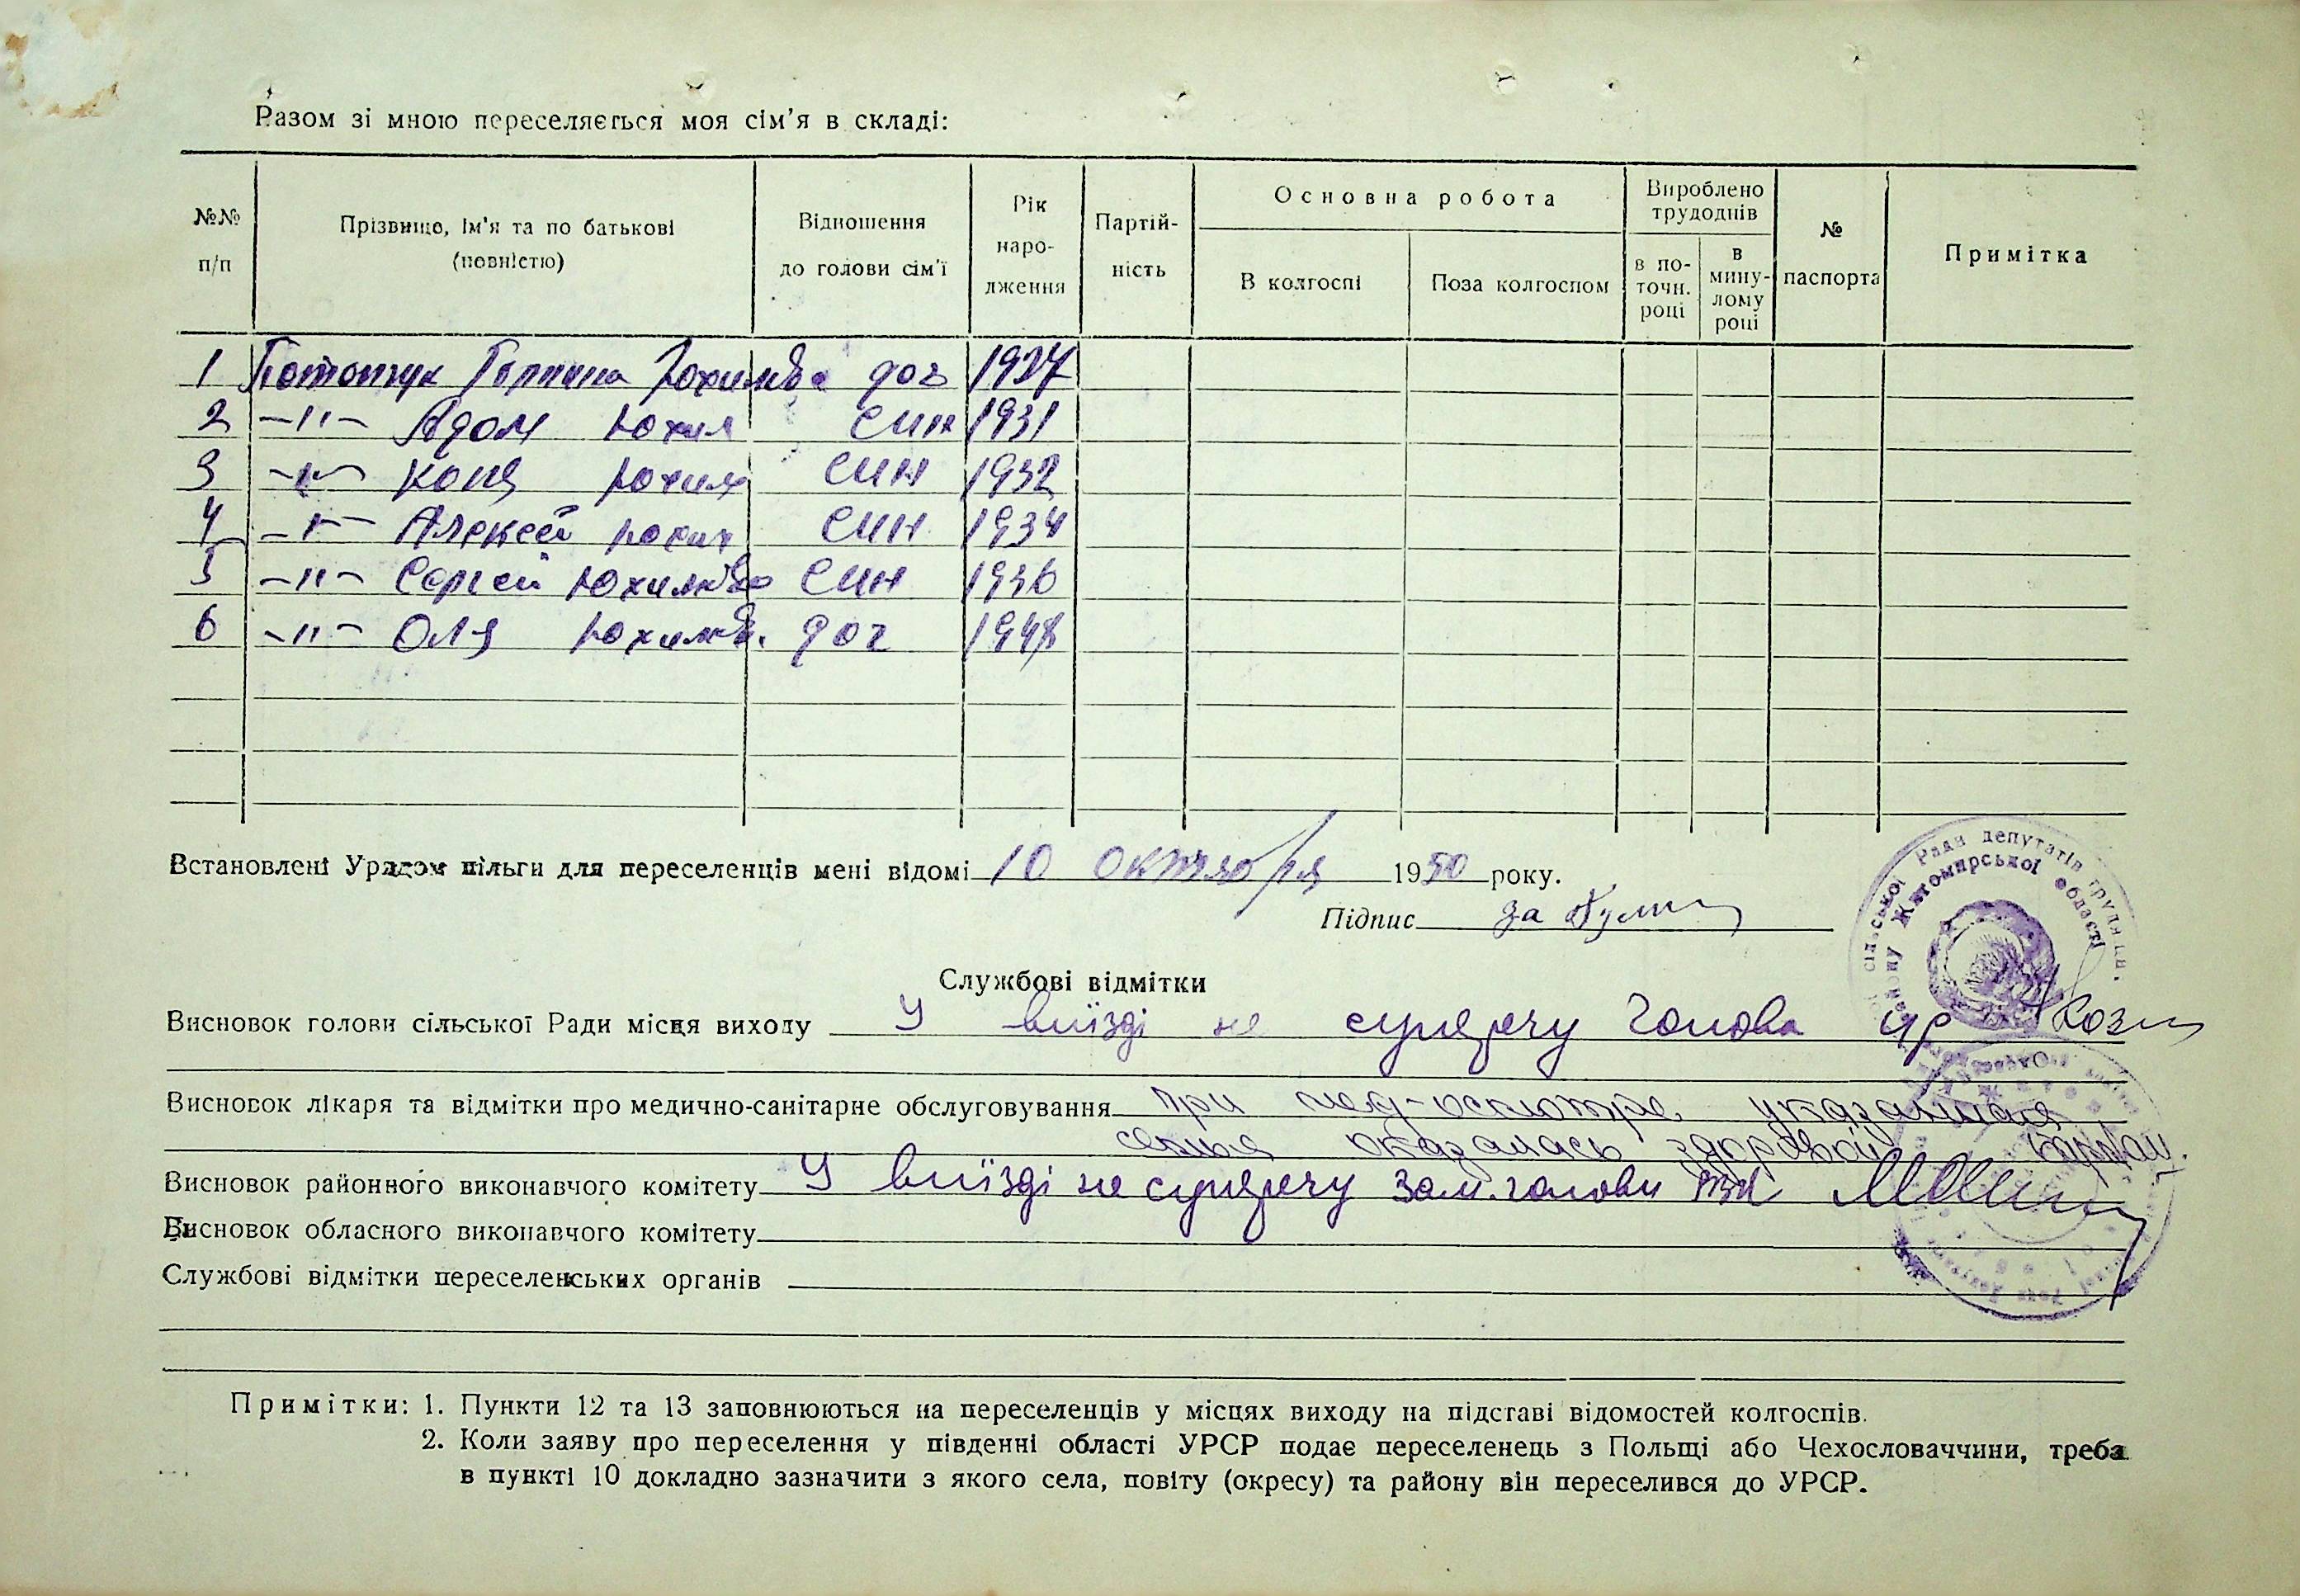 Разом зі мною переселяється моя сім'я в складі:
№№ п/п
Прізвище, ім'я та по батькові (повністю)
Відношення до голови сім'ї
Рік народження
Партійність
Основна робота
В колгоспі
Поза колгоспом
Вироблено трудоднів
в поточн. році
в минулому році
№ паспорта
Примітка
1 доч 1927
2 -"- Адом Юхим син 1931
3 -"- Коля Юхим син 1932
4 -"- Алексей Юхим син 1934
5 -"- Сергей Юхимов син 1936
6 -"- Оля Юхимов. доч 1948
Встановлені Урядом пільги для переселенців мені відомі 10 октября 1950 року.
Підпис за
Службові відмітки
Висновок голови сільської Ради місця виходу У виїзді не суперечу Голова с/р
Висновок лікаря та відмітки про медично-санітарне обслуговування при мед-осмотре указанная
семья оказалась здоровой
Висновок районного виконавчого комітету У виїзді не суперечу Зам. голови
Висновок обласного виконавчого комітету
Службові відмітки переселенських органів
Примітки: 1. Пункти 12 та 13 заповнюються на переселенців у місцях виходу на підставі відомостей колгоспів.
2. Коли заяву про переселення у південні області УРСР подає переселенець з Польщі або Чехословаччини, треба
в пункті 10 докладно зазначити з якого села, повіту (окресу) та району він переселився до УРСР.
сільської Ради депутатів трудящ.
району Житомирської області